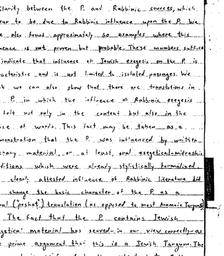 ilarity between the P. and Rabbinic sources, which
ear to be due to Rabbinic influence upon the P. We
e also found approximately 50 examples where this
uence is not proven but probable. These numbers suffice
indicate that influence of Jewish exegesis on the P. is
racteristic and is not limited to isolated passages. We
k we can also show that there are translations in
P. in which the influence of Rabbinic exegesis
felt not only in the content but also in the
ice of words. This fact may be taken as a
monstration that the P. was influenced by written
material, or at least, oral exegetical-midrashic
ditions which were already stylistically formalized
clearly attested influence of Rabbinic literature did
change the basic character of the P. as a
al ("peshat") translation (as opposed to most Aramaic Targums
The fact that the P. contains Jewish
getical material has served in our view correctly as
prime argument that this is a Jewish Targum. The